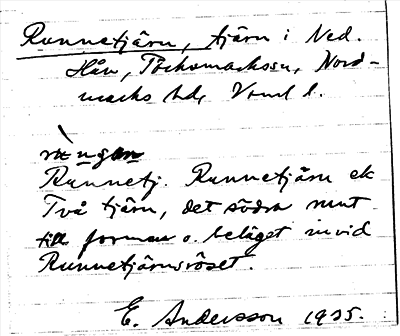 Runnetjärn, tjärn i Ned.
Hån, Töcksmarks sn, Nord-
marks hd, Vrml l.
Runnetj. Runnetjärn ek
Två tjärn, det södra runt
till formen o. beläget invid
Runnetjärnsröset.
E. Andersson 1935.